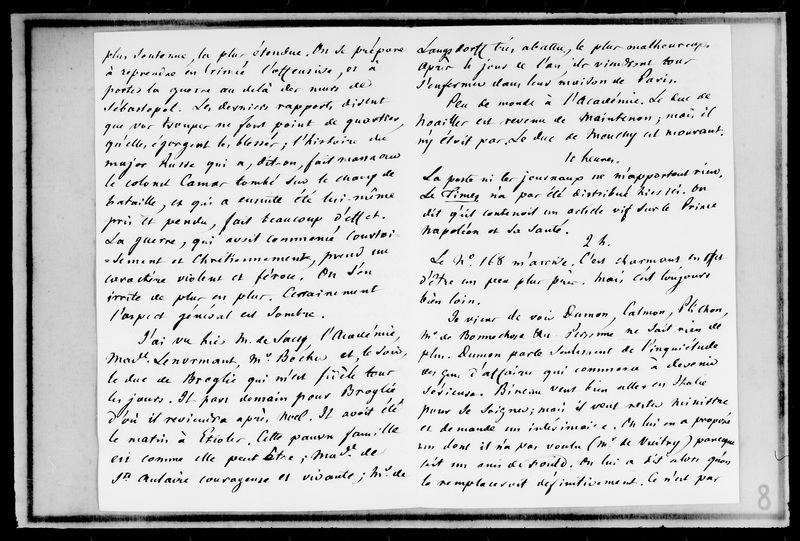 plus soutenue, la plus étendue. On se prépare
à reprendre en Crimée l'offensive, et à
porter la guerre au delà des murs de
Sébastopol. Les derniers rapports disent
que vos troupes ne font point de quartier,
qu'elles égorgent les blessés ; l'histoire du
major Russe qui a, dit-on, fait massacrer
le colonel Camar tombé sur le champ de
bataille, et qui a ensuite été lui-même
pris et pendu, fait beaucoup d'effet.
La guerre, qui avait commencé courtoi-
-sement et Chrétiennement, prend un
caractère violent et féroce. On s'en
irrite de plus en plus. Certainement
l'aspect général est sombre.
J'ai vu hier M. de Sacy, l'Académie,
Mad.e Lenormant, Mr. Bocher et, le soir,
le duc de Broglie qui m'est fidèle tous
les jours. Il part demain pour Broglie
d'où il reviendra après Noël. Il avoit été
le matin à Etioles. Cette pauvre famille
est comme elle peut être ; Mad.e de
Ste Aulaire courageuse et vivante ; Mr. de
Langsdorff très abattu, le plus malheureux.
Après le jour de l'an ils viendront tous
s'enfermer dans leur maison de Paris.
Peu de monde à l'Académie. Le duc de
Noailles est revenu de Maintenon ; mais il
n'y étoit pas. Le duc de Mouchy est mourant.
10 heures.
La poste ni les journaux ne m'apportent rien.
Le Times n'a pas été distribué hier ici. On
dit qu'il contenoit un article vif sur le Prince
Napoléon et sa santé.
2 h.
Le No. 168 m'arrive. C'est charmant en effet
d'être un peu plus près. Mais c'est toujours
bien loin.
Je viens de voir Dumon, Calmon, Plichon,
Mr. de Bonnechose &c. Personne ne sait rien de
plus. Dumon parle seulement de l'inquiétude
des gens d'affaires qui commence à devenir
sérieuse. Bineau veut bien aller en Italie
pour se soigner, mais il veut rester ministre
et demande un intérimaire. On lui en a proposé
un dont il n'a pas voulu (Mr. de Vuitry) parceque
c'est un ami de Fould. On lui a dit alors qu'on
le remplaceroit définitivement. Ce n'est pas
8